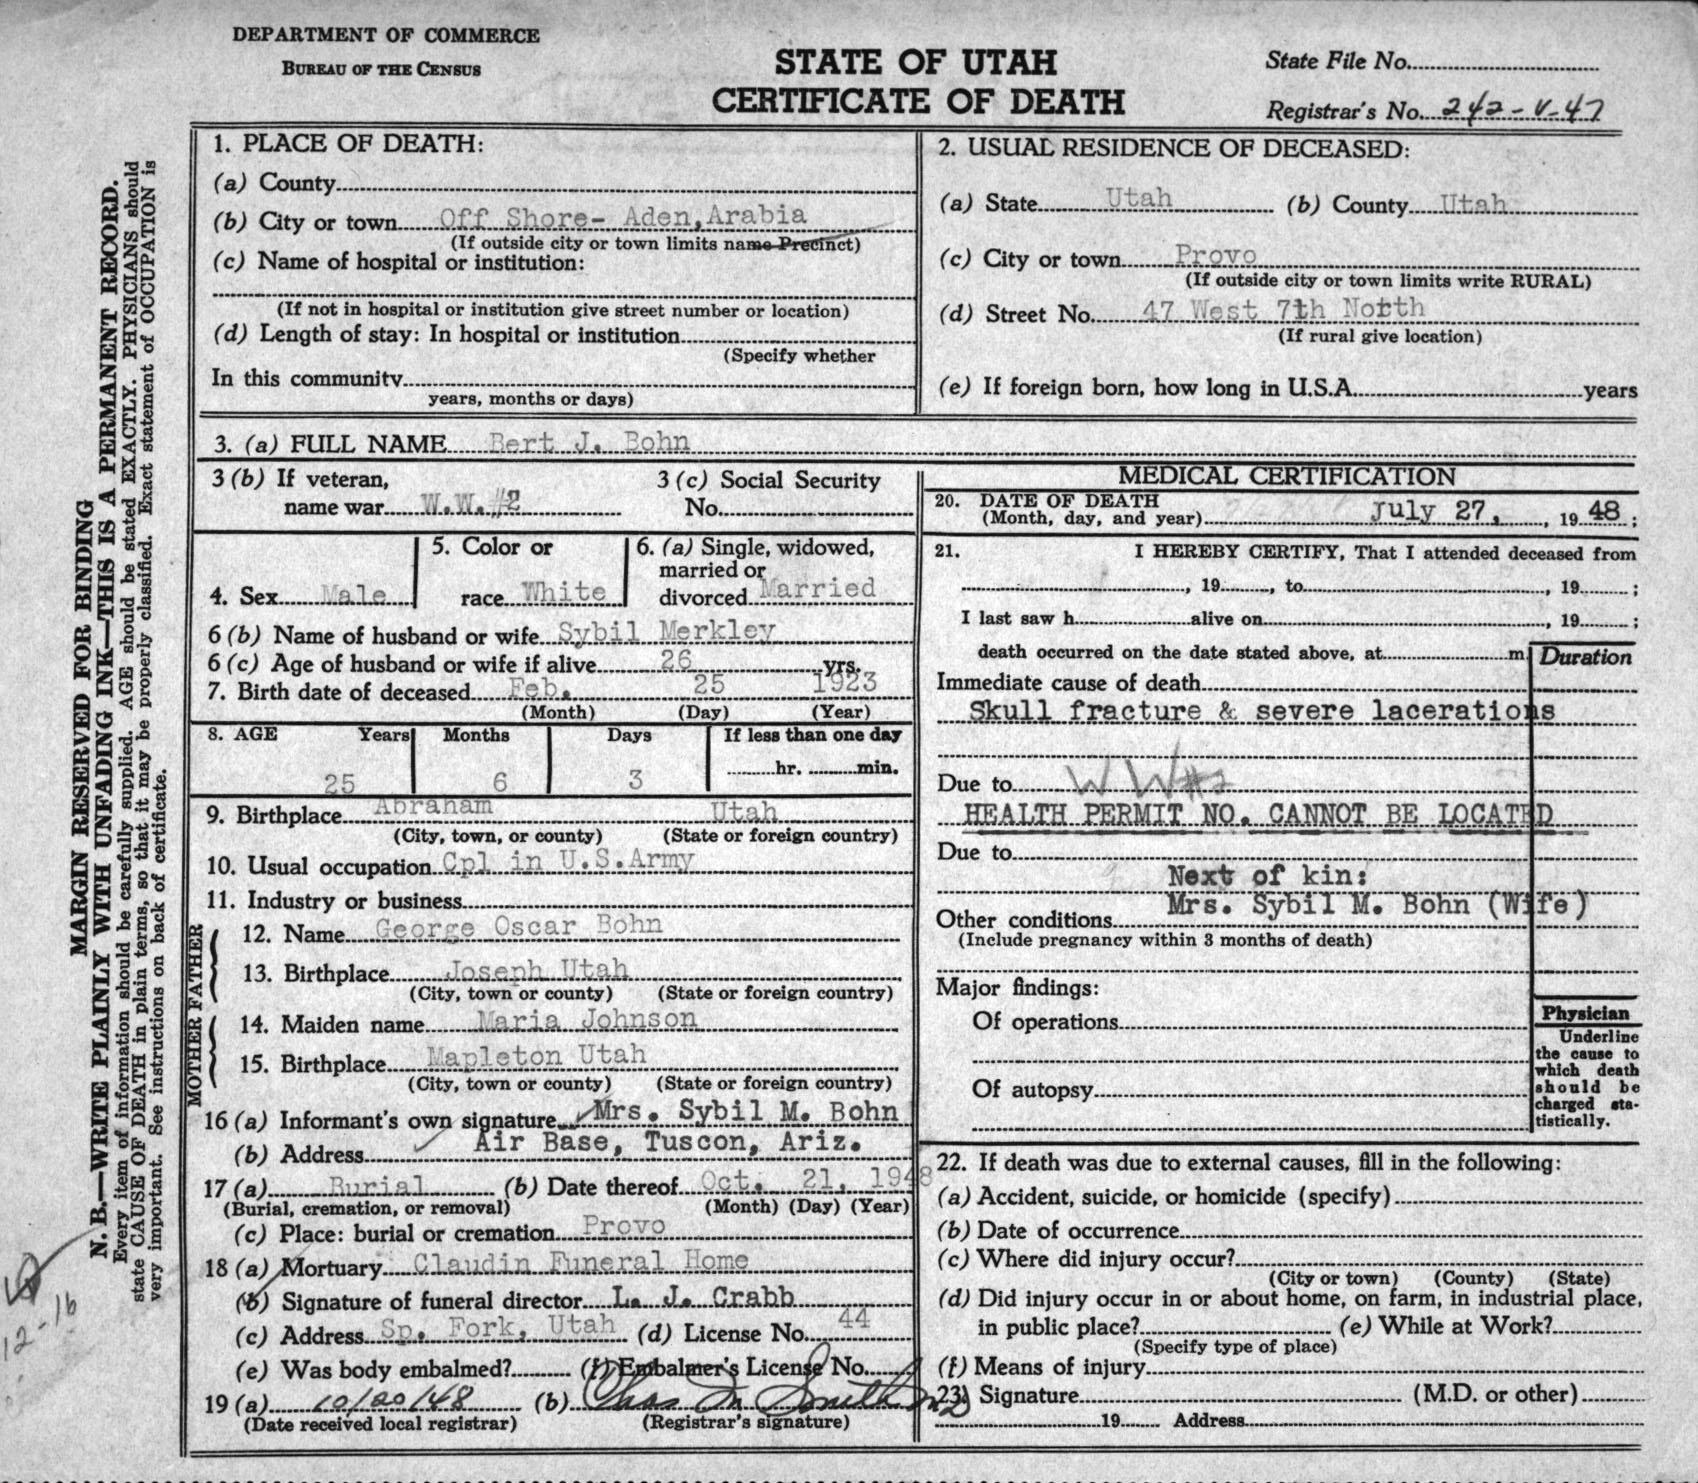 DEPARTMENT OF COMMERCE
BUREAU OF THE CENSUS
STATE OF UTAH
CERTIFICATE OF DEATH
State File No.
Registrar's No. 242-V-47
MARGIN RESERVED FOR BINDING
N. B.—WRITE PLAINLY WITH UNFADING INK—THIS IS A PERMANENT RECORD.
Every item of information should be carefully supplied. AGE should be stated EXACTLY. PHYSICIANS should
state CAUSE OF DEATH in plain terms, so that it may be properly classified. Exact statement of OCCUPATION is
very important. See instructions on back of certificate.
12-16
1. PLACE OF DEATH:
(a) County
(b) City or town Off Shore- Aden,Arabia
(If outside city or town limits name Precinct)
(c) Name of hospital or institution:
(If not in hospital or institution give street number or location)
(d) Length of stay: In hospital or institution
(Specify whether
In this community
years, months or days)
2. USUAL RESIDENCE OF DECEASED:
(a) State Utah (b) County Utah
(c) City or town Provo
(If outside city or town limits write RURAL)
(d) Street No. 47 West 7th North
(If rural give location)
(e) If foreign born, how long in U.S.A. years
3. (a) FULL NAME Bert J. Bohn
3 (b) If veteran,
name war W.W.#2
3 (c) Social Security
No.
4. Sex Male
5. Color or
race White
6. (a) Single, widowed,
married or
divorced Married
6 (b) Name of husband or wife Sybil Merkley
6 (c) Age of husband or wife if alive 26 yrs.
7. Birth date of deceased Feb. 25 1923
(Month) (Day) (Year)
8. AGE Years Months Days If less than one day
hr. min.
25 6 3
9. Birthplace Abraham Utah
(City, town, or county) (State or foreign country)
10. Usual occupation Cpl in U.S.Army
11. Industry or business
FATHER
12. Name George Oscar Bohn
13. Birthplace Joseph Utah
(City, town or county) (State or foreign country)
MOTHER
14. Maiden name Maria Johnson
15. Birthplace Mapleton Utah
(City, town or county) (State or foreign country)
16 (a) Informant's own signature Mrs. Sybil M. Bohn
(b) Address Air Base, Tuscon, Ariz.
17 (a) Burial (b) Date thereof Oct. 21, 1948
(Burial, cremation, or removal) (Month) (Day) (Year)
(c) Place: burial or cremation Provo
18 (a) Mortuary Claudin Funeral Home
(b) Signature of funeral director L. J. Crabb
(c) Address Sp. Fork, Utah (d) License No. 44
(e) Was body embalmed? (f) Embalmer's License No.
19 (a) 10/20/48 (b) Chas M Smith MD
(Date received local registrar) (Registrar's signature)
MEDICAL CERTIFICATION
20. DATE OF DEATH
(Month, day, and year) July 27, , 19 48 ;
21. I HEREBY CERTIFY, That I attended deceased from
, 19 , to , 19 ;
I last saw h alive on , 19 ;
death occurred on the date stated above, at m
Duration
Immediate cause of death
Skull fracture & severe lacerations
Due to W W #2
HEALTH PERMIT NO. CANNOT BE LOCATED
Due to
Next of kin:
Mrs. Sybil M. Bohn (Wife)
Other conditions
(Include pregnancy within 3 months of death)
Major findings:
Of operations
Of autopsy
Physician
Underline
the cause to
which death
should be
charged sta-
tistically.
22. If death was due to external causes, fill in the following:
(a) Accident, suicide, or homicide (specify)
(b) Date of occurrence
(c) Where did injury occur?
(City or town) (County) (State)
(d) Did injury occur in or about home, on farm, in industrial place,
in public place? (e) While at Work?
(Specify type of place)
(f) Means of injury
23. Signature (M.D. or other)
19 Address